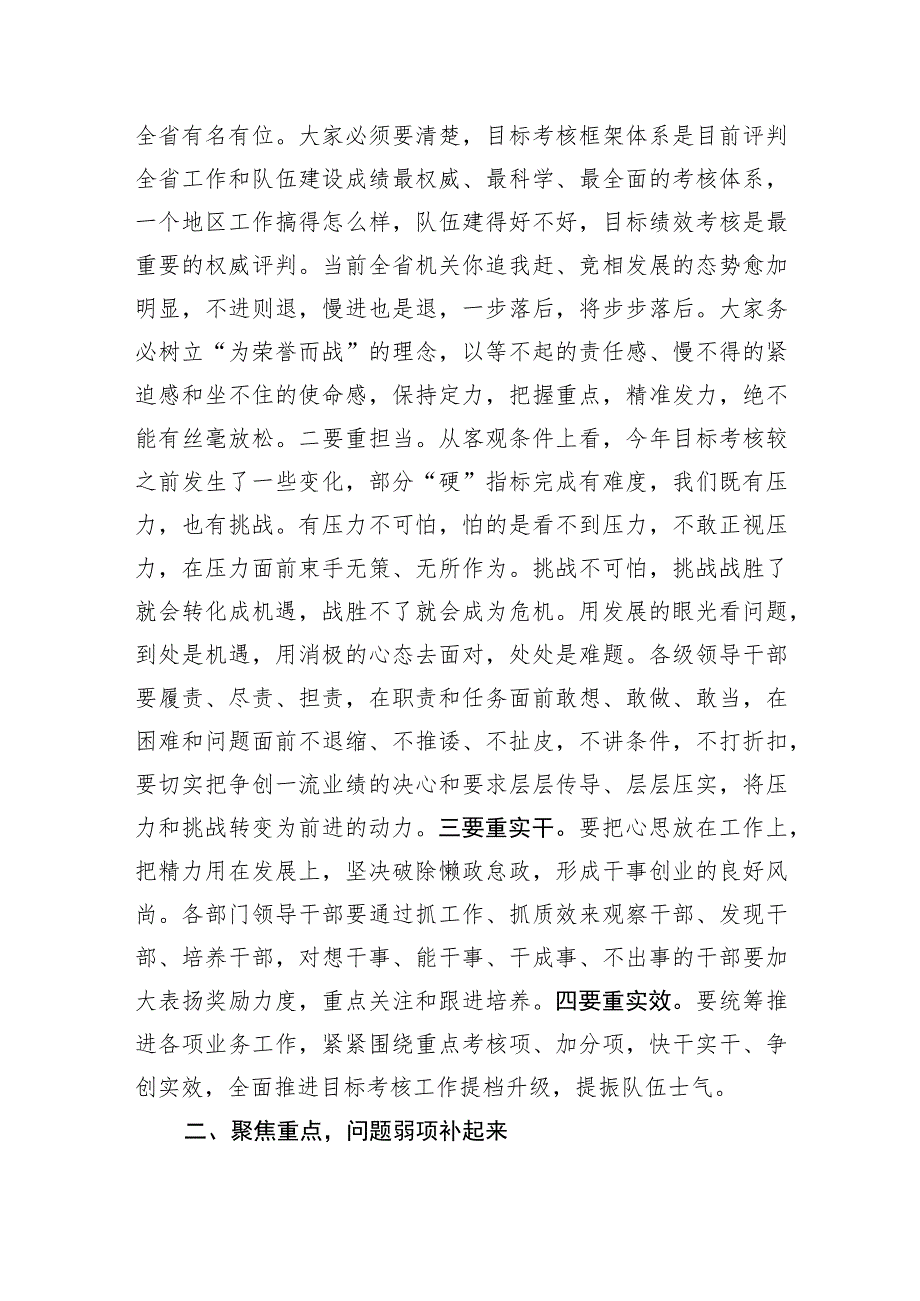 全省有名有位。大家必须要清楚，目标考核框架体系是目前评判
全省工作和队伍建设成绩最权威、最科学、最全面的考核体系，
一个地区工作搞得怎么样，队伍建得好不好，目标绩效考核是最
重要的权威评判。当前全省机关你追我赶、竞相发展的态势愈加
明显，不进则退，慢进也是退，一步落后，将步步落后。大家务
必树立“为荣誉而战”的理念，以等不起的责任感、慢不得的紧
迫感和坐不住的使命感，保持定力，把握重点，精准发力，绝不
能有丝毫放松。二要重担当。从客观条件上看，今年目标考核较
之前发生了一些变化，部分“硬”指标完成有难度，我们既有压
力，也有挑战。有压力不可怕，怕的是看不到压力，不敢正视压
力，在压力面前束手无策、无所作为。挑战不可怕，挑战战胜了
就会转化成机遇，战胜不了就会成为危机。用发展的眼光看问题，
到处是机遇，用消极的心态去面对，处处是难题。各级领导干部
要履责、尽责、担责，在职责和任务面前敢想、敢做、敢当，在
困难和问题面前不退缩、不推诿、不扯皮，不讲条件，不打折扣，
要切实把争创一流业绩的决心和要求层层传导、层层压实，将压
力和挑战转变为前进的动力。三要重实干。要把心思放在工作上，
把精力用在发展上，坚决破除懒政怠政，形成干事创业的良好风
尚。各部门领导干部要通过抓工作、抓质效来观察干部、发现干
部、培养干部，对想干事、能干事、干成事、不出事的干部要加
大表扬奖励力度，重点关注和跟进培养。四要重实效。要统筹推
进各项业务工作，紧紧围绕重点考核项、加分项，快干实干、争
创实效，全面推进目标考核工作提档升级，提振队伍士气。
二、聚焦重点，问题弱项补起来